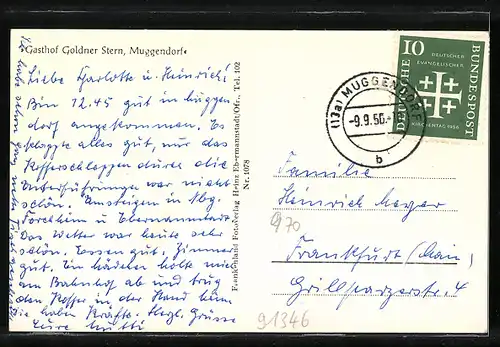 "Gasthof Goldner Stern, Muggendorf"
Liebe Charlotte u. Heinrich!
Bin 12.45 gut in Muggen
dorf angekommen. Es
klappte alles gut, nur das
Kofferschleppen durch die
Unterführungen war nicht
schön. Umsteigen in Nbg.
Forchheim u. Ebermannstadt.
Das Wetter war heute sehr
schön. Essen gut. Zimmer
gut. Ein Mädchen holte mich
am Bahnhof ab und trug
den Koffer in der Hand
die haben Kräfte. Herzl. Grüsse
Eure Mutti
Frankenland Fotoverlag Heinz Ebermannstadt/Ofr., Tel. 102
Nr. 1078
(13a) MUGGENDORF
-9.9.56.-
b
10
DEUTSCHER
EVANGELISCHER
KIRCHENTAG 1956
DEUTSCHE
BUNDESPOST
Familie
Heinrich Meyer
970
Frankfurt (Main)
Grillparzerstr. 4
91346